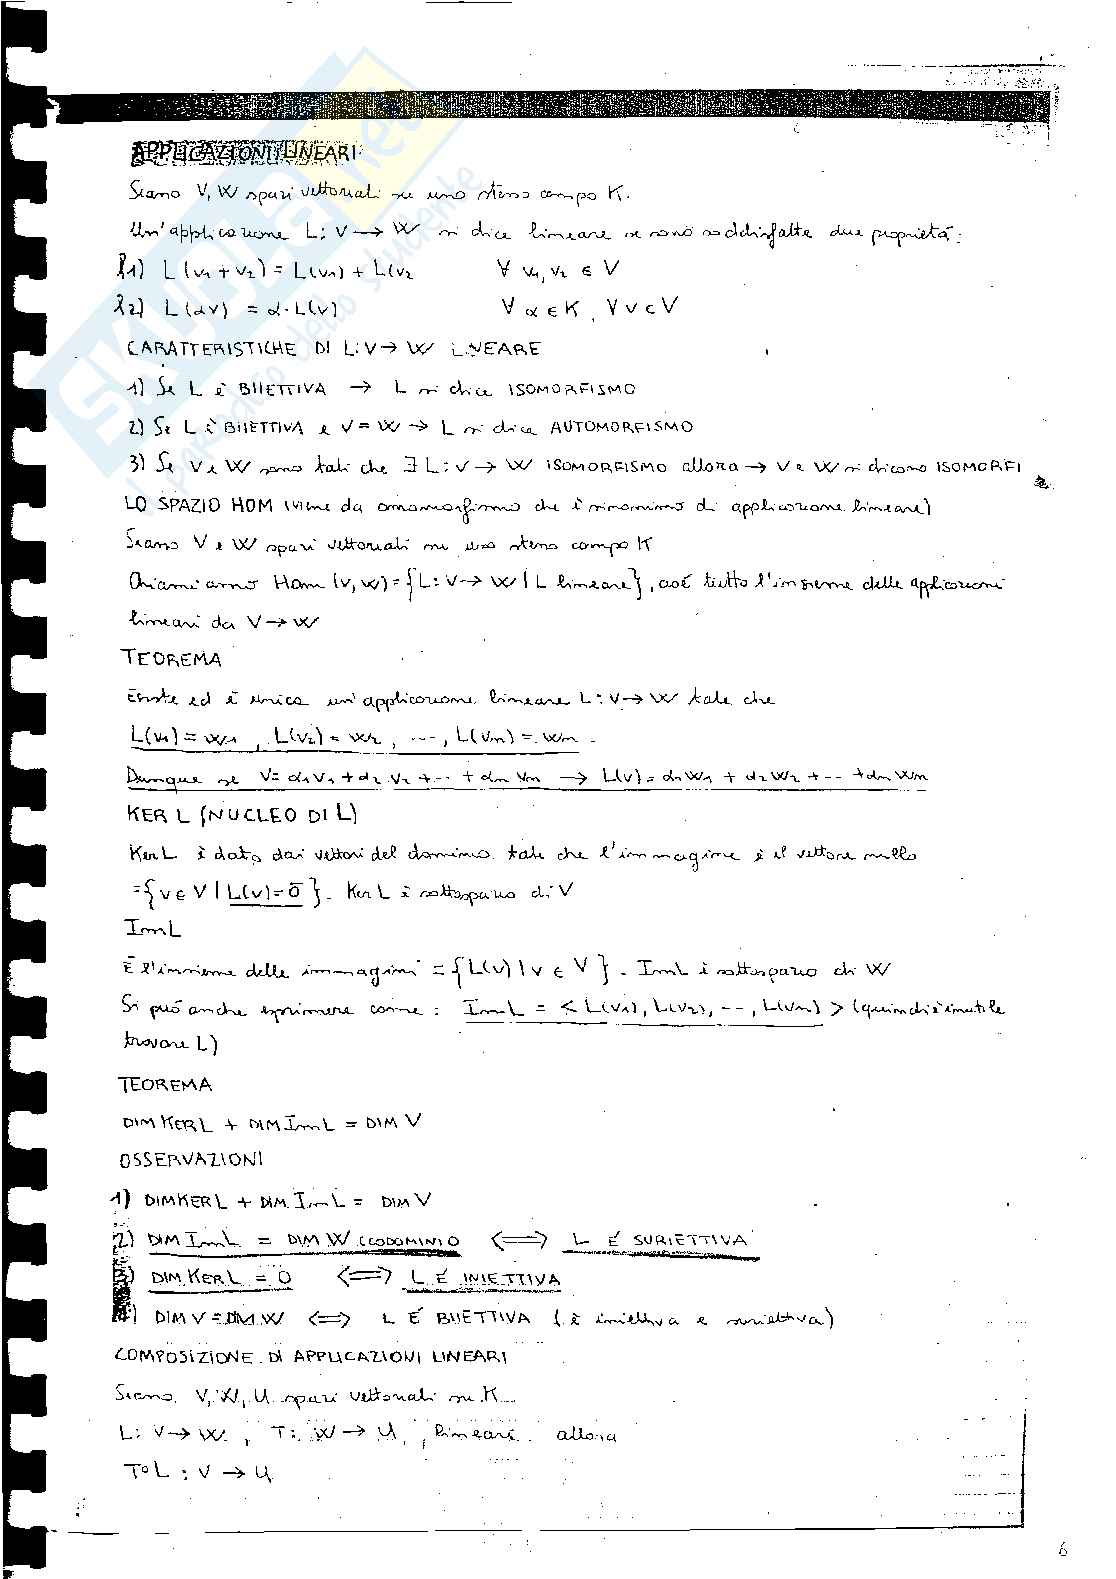 APPLICAZIONI LINEARI
Siano V, W spazi vettoriali su uno stesso campo K.
Un'applicazione L: V → W si dice lineare se sono soddisfatte due proprietà:
l1) L(v1 + v2) = L(v1) + L(v2 ∀ v1, v2 ∈ V
l2) L(αv) = α · L(v) ∀ α ∈ K, ∀ v ∈ V
CARATTERISTICHE DI L: V → W LINEARE
1) Se L è BIIETTIVA → L si dice ISOMORFISMO
2) Se L È BIIETTIVA e V = W → L si dice AUTOMORFISMO
3) Se V e W sono tali che ∃ L: V → W ISOMORFISMO allora → V e W si dicono ISOMORFI
LO SPAZIO HOM (viene da omomorfismo che è sinonimo di applicazione lineare)
Siano V e W spazi vettoriali su uno stesso campo K
Chiamiamo Hom (V, W) = {L: V → W | L lineare}, cioè tutto l'insieme delle applicazioni
lineari da V → W
TEOREMA
Esiste ed è unica un'applicazione lineare L: V → W tale che
L(v1) = w1, L(v2) = w2, ---, L(vn) = wn.
Dunque se V = α1v1 + α2 v2 + -- + αn vn → L(v) = α1w1 + α2w2 + -- + αn wn
KER L (NUCLEO DI L)
Ker L è dato dai vettori del dominio tale che l'immagine è il vettore nullo
= {v ∈ V | L(v) = 0̄}. Ker L è sottospazio di V
Im L
È l'insieme delle immagini = {L(v) | v ∈ V}. Im L è sottospazio di W
Si può anche esprimere come: Im L = < L(v1), L(v2), --, L(vn) > (quindi è inutile
trovare L)
TEOREMA
DIM KER L + DIM Im L = DIM V
OSSERVAZIONI
1) DIM KER L + DIM Im L = DIM V
2) DIM Im L = DIM W CODOMINIO ⟺ L É SURIETTIVA
3) DIM KER L = 0 ⟺ L É INIETTIVA
4) DIM V = DIM W ⟺ L É BIIETTIVA (è iniettiva e suriettiva)
COMPOSIZIONE DI APPLICAZIONI LINEARI
Siano V, W, U spazi vettoriali su K
L: V → W, T: W → U, lineari allora
T∘L : V → U
6
SKUOLA.net
il paradiso dello studente